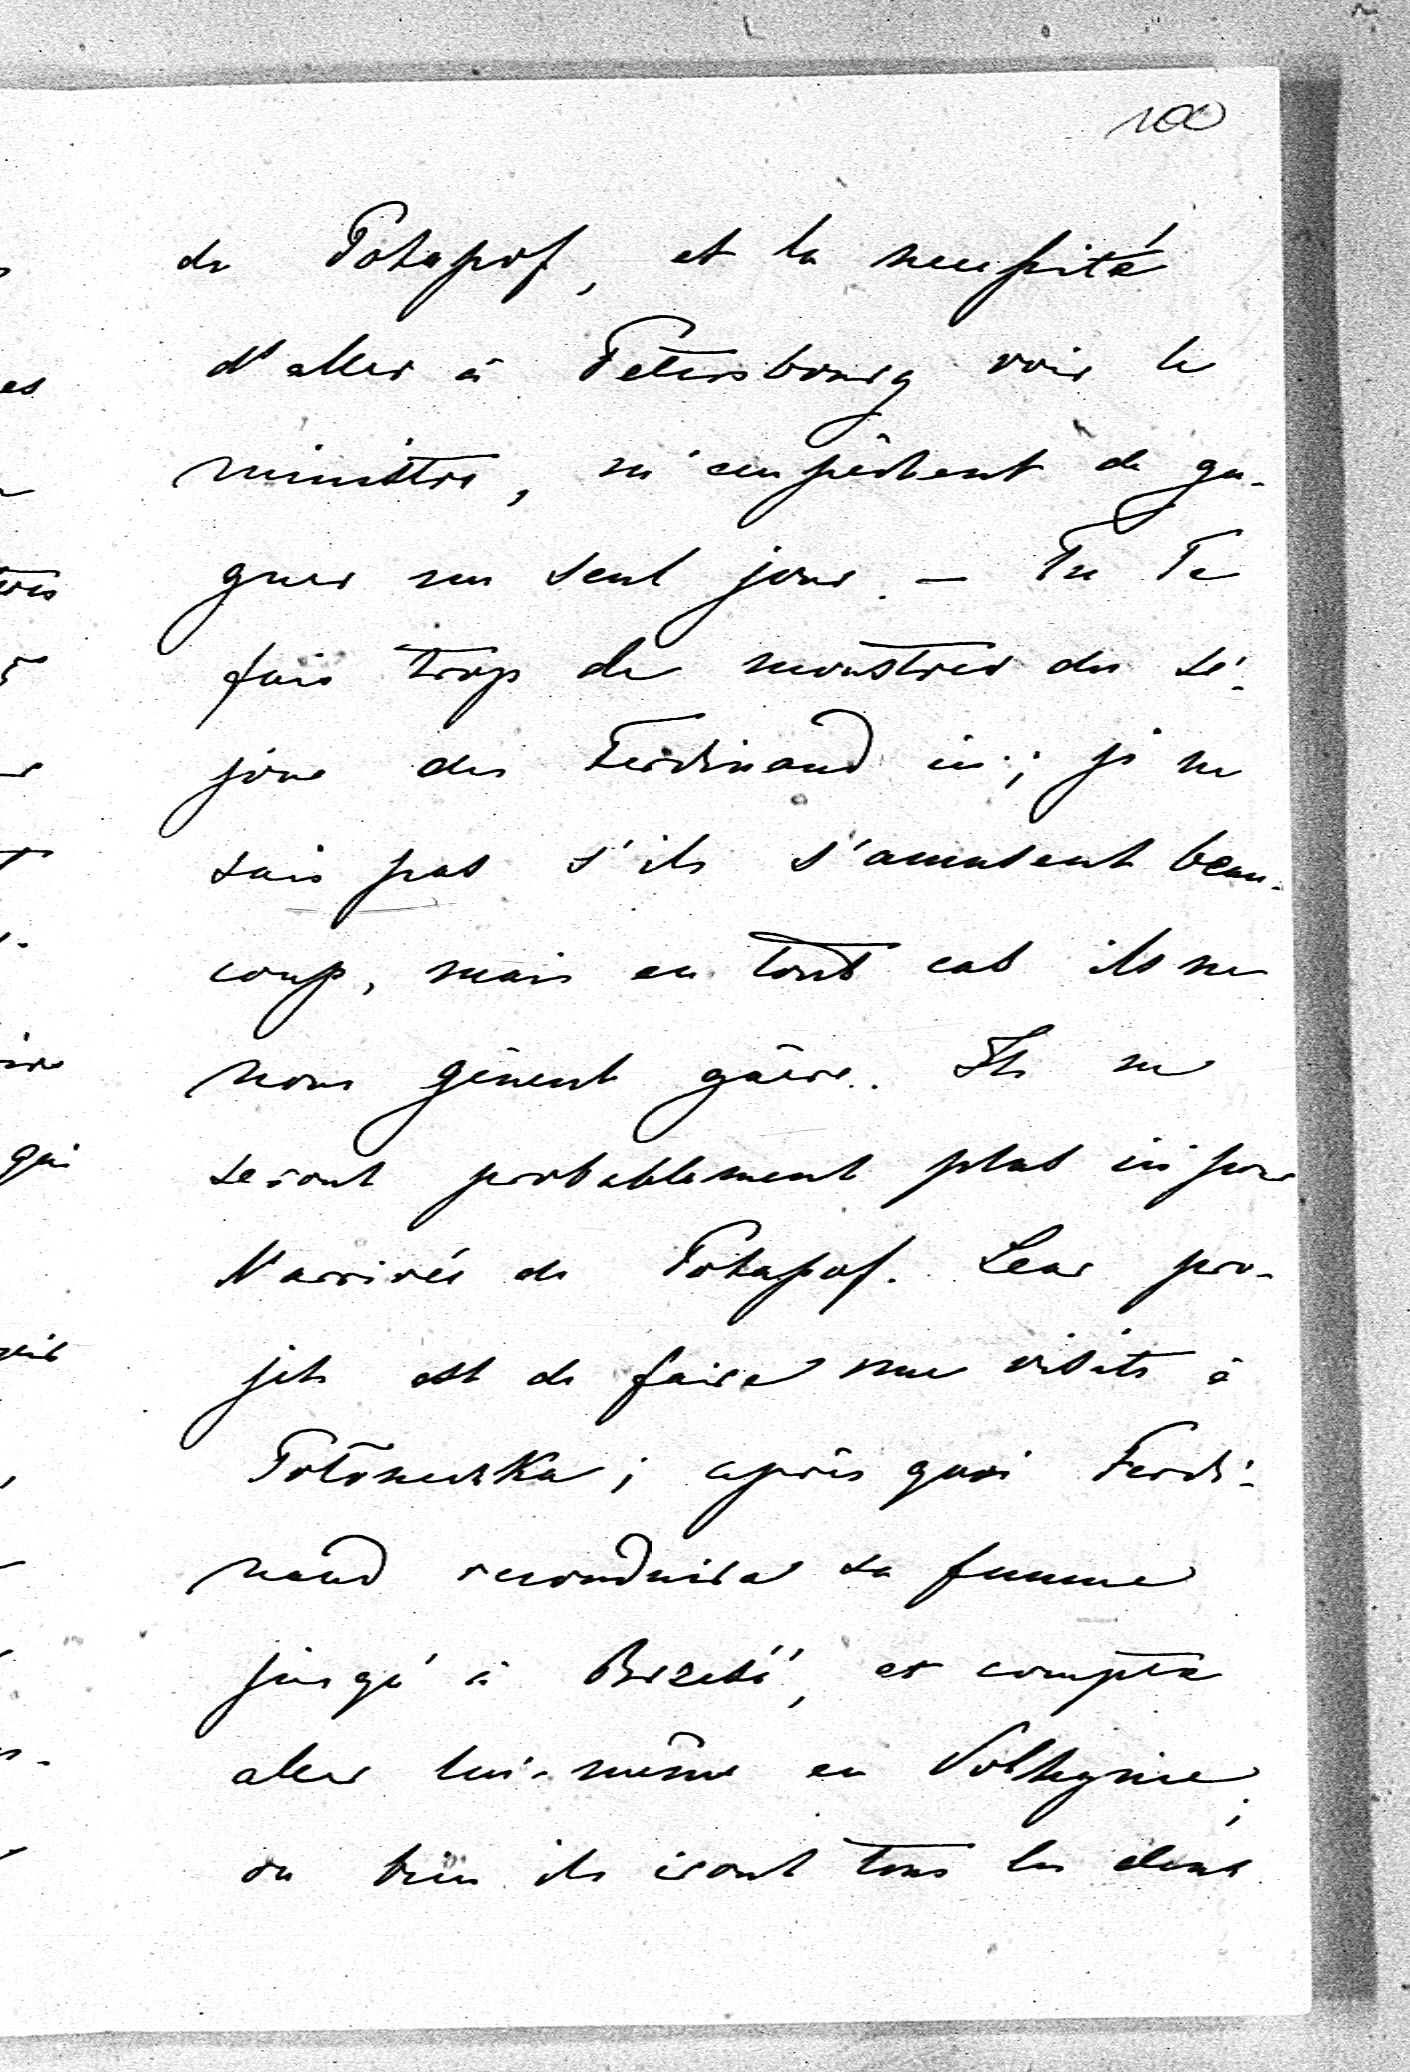 100
de Potapof, et la necessité
d'aller à Pétersbourg voir le
ministre, m'empêchent de ga-
gner un seul jour. — Tu Te
fais trop de monstres du sé-
jour des Ferdinand ici; je ne
sais pas s'ils s'amusent beau-
coup, mais en tout cas ils ne
nous gênent guère. Ils ne
seront probablement plus ici pour
l'arrivée de Potapof. Leur pro-
jet est de faire une visite à
après quoi Ferdi-
nand reconduira sa femme
jusqu'à Brzesć, et compte
aller lui-même en Volhynie;
ou bien ils iront tous les deux